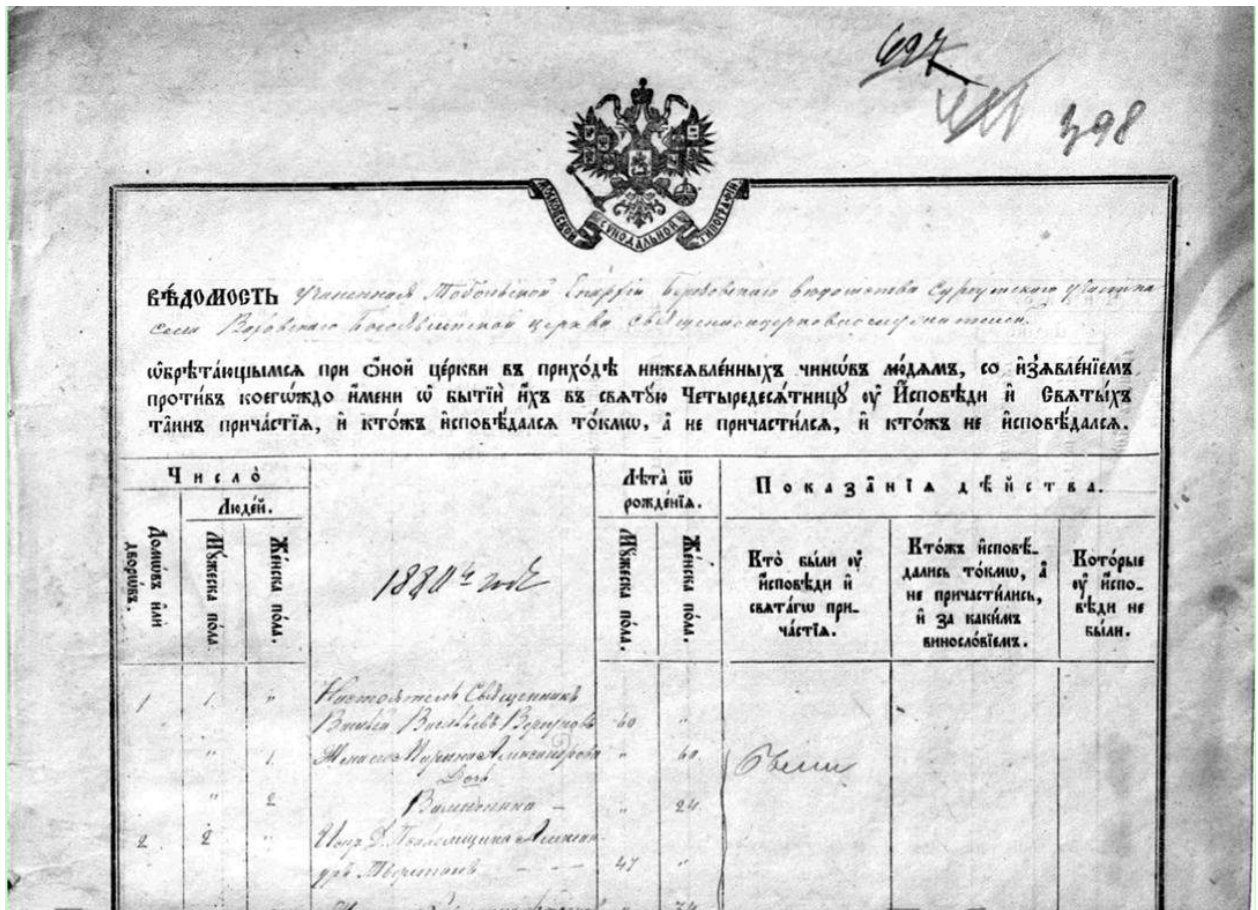 697
398
МОСКОВСКОЙ СѴНОДАЛЬНОЙ ТИПОГРАФІИ
ВѢ́ДОМОСТЬ Учиненная Тобольской Епархіи Березовскаго вѣдомства Сургутскаго участка
села Ваховскаго Богоявленской церкви священноцерковнослужителями
ѡ҆брѣта́ющымсѧ при ѻ҆́ной це́ркви въ прихо́дѣ нижеѧвле́нныхъ чинѡ́въ лю́дѧмъ, со и҆з̾ѧвле́нїемъ
проти́въ коегѡ́ждо и҆́мени ѡ҆ бытїѝ и҆́хъ въ свѧту́ю Четыредесѧ́тницꙋ ᲂу҆ И҆сповѣди и҆ Свѧты́хъ
та́инъ прича́стїѧ, и҆ кто́жъ и҆сповѣ́далсѧ то́кмѡ, а҆ не причасти́лсѧ, и҆ кто́жъ не и҆сповѣ́далсѧ.
Число̀
Люде́й.
Домѡ́въ и҆лѝ дворѡ́въ.
Мꙋ́жеска по́ла.
Же́нска по́ла.
1880й годъ
Лѣ́та ѿ рожде́нїѧ.
Мꙋ́жеска по́ла.
Же́нска по́ла.
Показа̑нїѧ дѣ́йства.
Кто̀ бы́ли ᲂу҆
и҆́сповѣди и҆
свѧта́гѡ при-
ча́стїѧ.
Кто́жъ и҆сповѣ́-
дались то́кмѡ, а҆
не причасти́лись,
и҆ за каки́мъ
виносло́вїемъ.
Кото́рые
ᲂу҆ и҆спо-
вѣди не
бы́ли.
1 1. " Настоятель Священникъ
Васильевъ 60 "
" 1. Жена его Александрова " 60.
Дочь
" 2 Валентина — " 24.
Были
2 2 " И. Д. Псаломщика Алексан-
дръ Тверитинъ — — 47 "